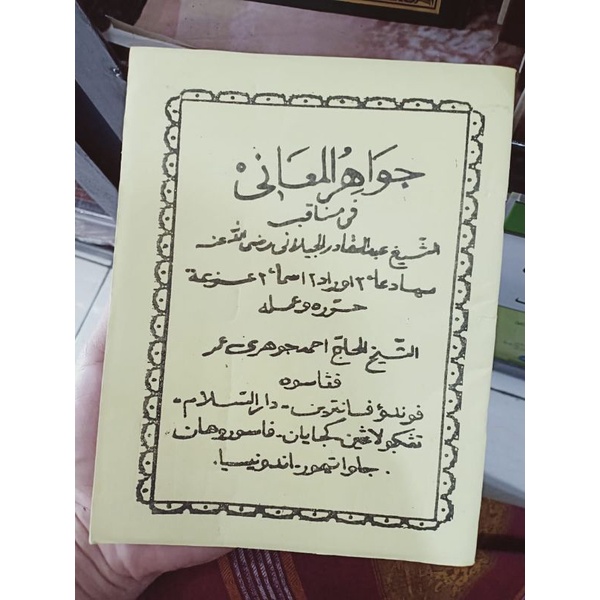 جَوَاهِرُ المَعَانِي
في مناقب
الشّيخ عبد القادر الجيلاني رضي الله عنه
سرتا دعاء٢ اوراد٢ اسماء٢ عزيمة
حرّره وعمله
الشّيخ الحاج احمد جوهري عمر
ڤڠاسوه
ڤوندوق ڤسانترين - دار السّلام -
تڠكولاڠين كجايان - ڤاسوروهان
جاوا تيمور - اندونيسيا.